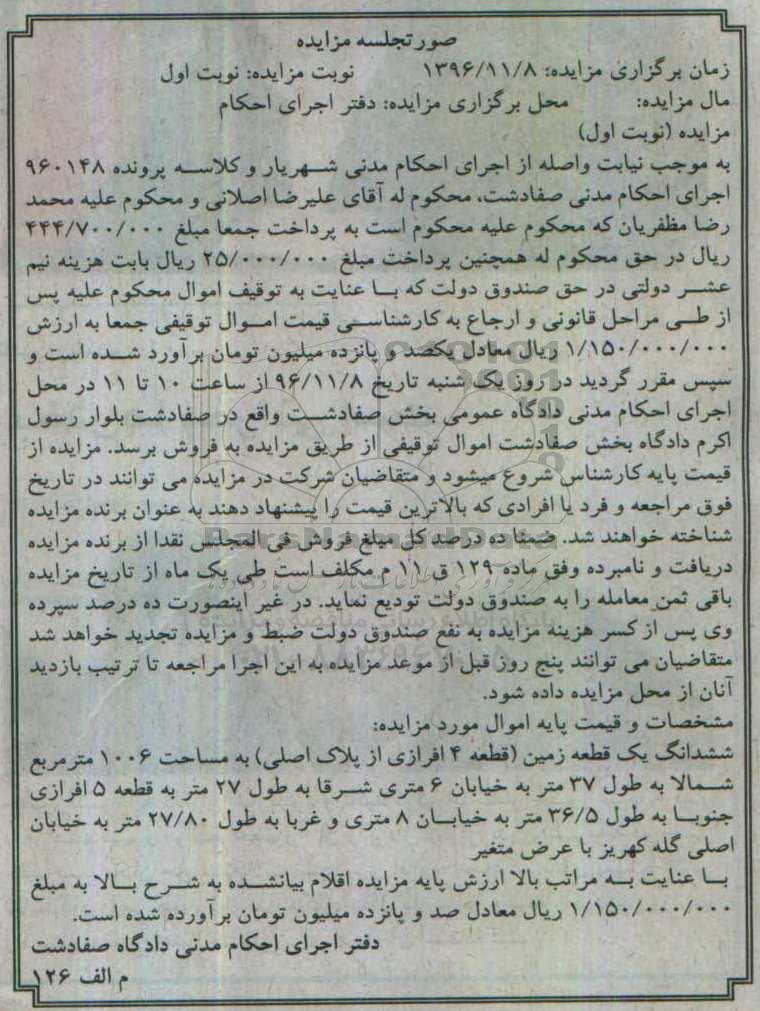 صورتجلسه مزایده
زمان برگزاری مزایده: ۱۳۹۶/۱۱/۸ نوبت مزایده: نوبت اول
مال مزایده: محل برگزاری مزایده: دفتر اجرای احکام
مزایده (نوبت اول)
به موجب نیابت واصله از اجرای احکام مدنی شهریار و کلاسه پرونده ۹۶۰۱۴۸
اجرای احکام مدنی صفادشت، محکوم له آقای علیرضا اصلانی و محکوم علیه محمد
رضا مظفریان که محکوم علیه محکوم است به پرداخت جمعا مبلغ ۴۴۴/۷۰۰/۰۰۰
ریال در حق محکوم له همچنین پرداخت مبلغ ۲۵/۰۰۰/۰۰۰ ریال بابت هزینه نیم
عشر دولتی در حق صندوق دولت که با عنایت به توقیف اموال محکوم علیه پس
از طی مراحل قانونی و ارجاع به کارشناسی قیمت اموال توقیفی جمعا به ارزش
۱/۱۵۰/۰۰۰/۰۰۰ ریال معادل یکصد و پانزده میلیون تومان برآورد شده است و
سپس مقرر گردید در روز یک شنبه تاریخ ۹۶/۱۱/۸ از ساعت ۱۰ تا ۱۱ در محل
اجرای احکام مدنی دادگاه عمومی بخش صفادشت واقع در صفادشت بلوار رسول
اکرم دادگاه بخش صفادشت اموال توقیفی از طریق مزایده به فروش برسد. مزایده از
قیمت پایه کارشناس شروع میشود و متقاضیان شرکت در مزایده می توانند در تاریخ
فوق مراجعه و فرد یا افرادی که بالاترین قیمت را پیشنهاد دهند به عنوان برنده مزایده
شناخته خواهند شد. ضمنا ده درصد کل مبلغ فروش فی المجلس نقدا از برنده مزایده
دریافت و نامبرده وفق ماده ۱۲۹ ق ۱۱ م مکلف است طی یک ماه از تاریخ مزایده
باقی ثمن معامله را به صندوق دولت تودیع نماید. در غیر اینصورت ده درصد سپرده
وی پس از کسر هزینه مزایده به نفع صندوق دولت ضبط و مزایده تجدید خواهد شد
متقاضیان می توانند پنج روز قبل از موعد مزایده به این اجرا مراجعه تا ترتیب بازدید
آنان از محل مزایده داده شود.
مشخصات و قیمت پایه اموال مورد مزایده:
ششدانگ یک قطعه زمین (قطعه ۴ افرازی از پلاک اصلی) به مساحت ۱۰۰۶ مترمربع
شمالا به طول ۳۷ متر به خیابان ۶ متری شرقا به طول ۲۷ متر به قطعه ۵ افرازی
جنوبا به طول ۳۶/۵ متر به خیابان ۸ متری و غربا به طول ۲۷/۸۰ متر به خیابان
اصلی گله کهریز با عرض متغیر
با عنایت به مراتب بالا ارزش پایه مزایده اقلام بیانشده به شرح بالا به مبلغ
۱/۱۵۰/۰۰۰/۰۰۰ ریال معادل صد و پانزده میلیون تومان برآورده شده است.
دفتر اجرای احکام مدنی دادگاه صفادشت
م الف ۱۲۶
ParsNamadData